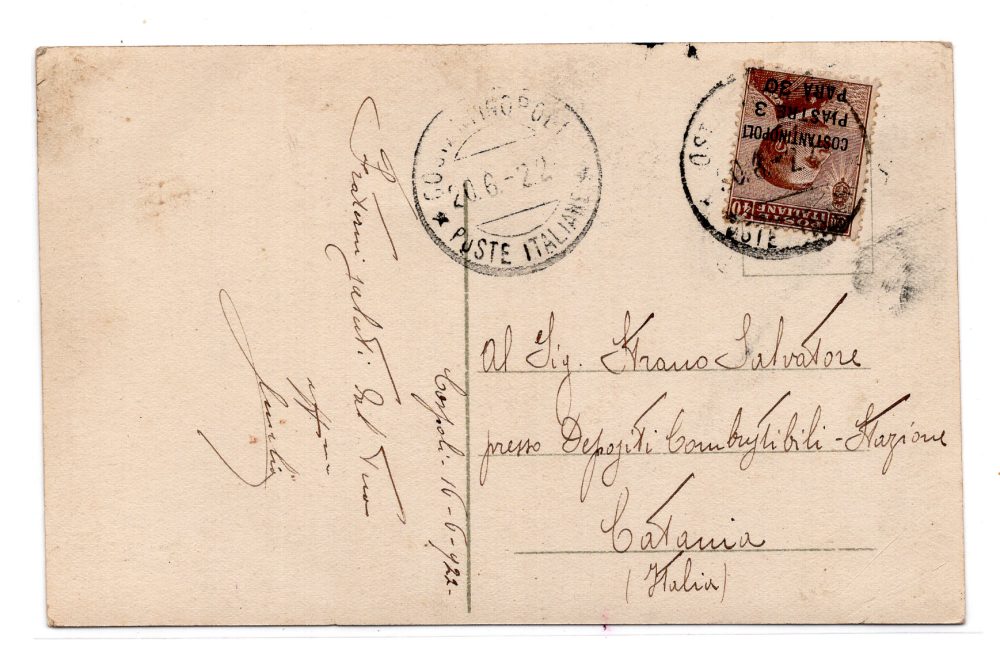 Fraterni saluti dal tuo
Cospoli - 16-6-922-
COSTANTINOPOLI
20.6.-22
* POSTE ITALIANE *
COSTANTINOPOLI
PIASTRE 3
PARA 30
40
POSTE
ITALIANE
Al Sig. Strano Salvatore
presso Depositi Combustibili - Stazione
Catania
(Italia)